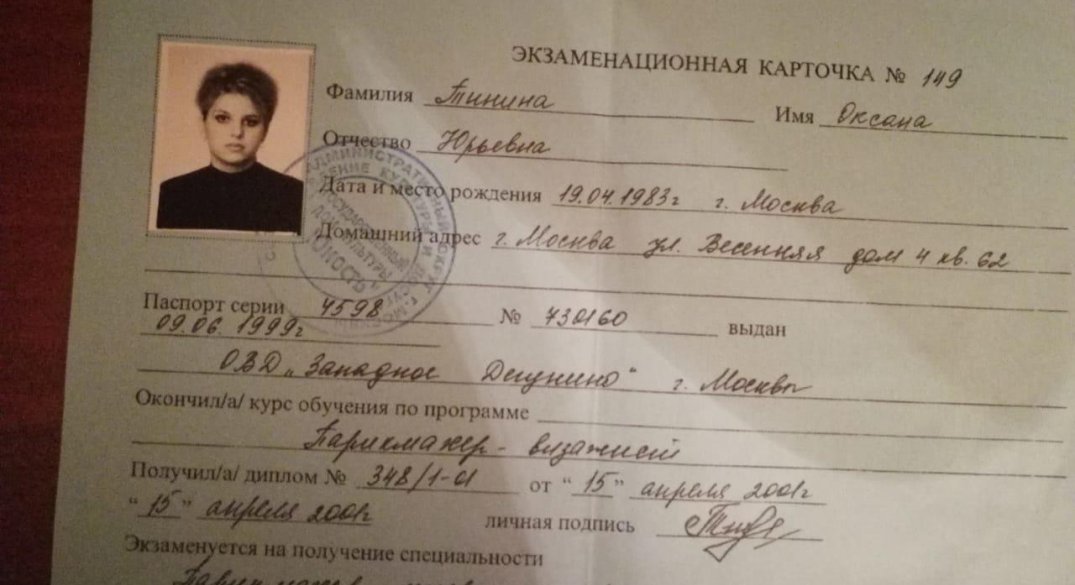 ЭКЗАМЕНАЦИОННАЯ КАРТОЧКА № 149
Фамилия Тинина Имя Оксана
Отчество Юрьевна
Дата и место рождения 19.04.1983г г. Москва
Домашний адрес г. Москва ул. Весенняя дом 4 кв. 62
Паспорт серии 4598 № 430160 выдан
09.06.1999г
ОВД „Западное Дегунино“ г. Москвы
Окончил/а/ курс обучения по программе
Парикмахер - визажист
Получил/а/ диплом № 348/1-01 от “15” апреля 2001г
“15” апреля 2001г личная подпись
Экзаменуется на получение специальности
АДМИНИСТРАТИВНЫЙ ОКРУГ
КУЛЬТУРЫ И
ГОСУДАРСТВЕННЫЙ
ДОМ КУЛЬТУРЫ
"ЮНОСТЬ"